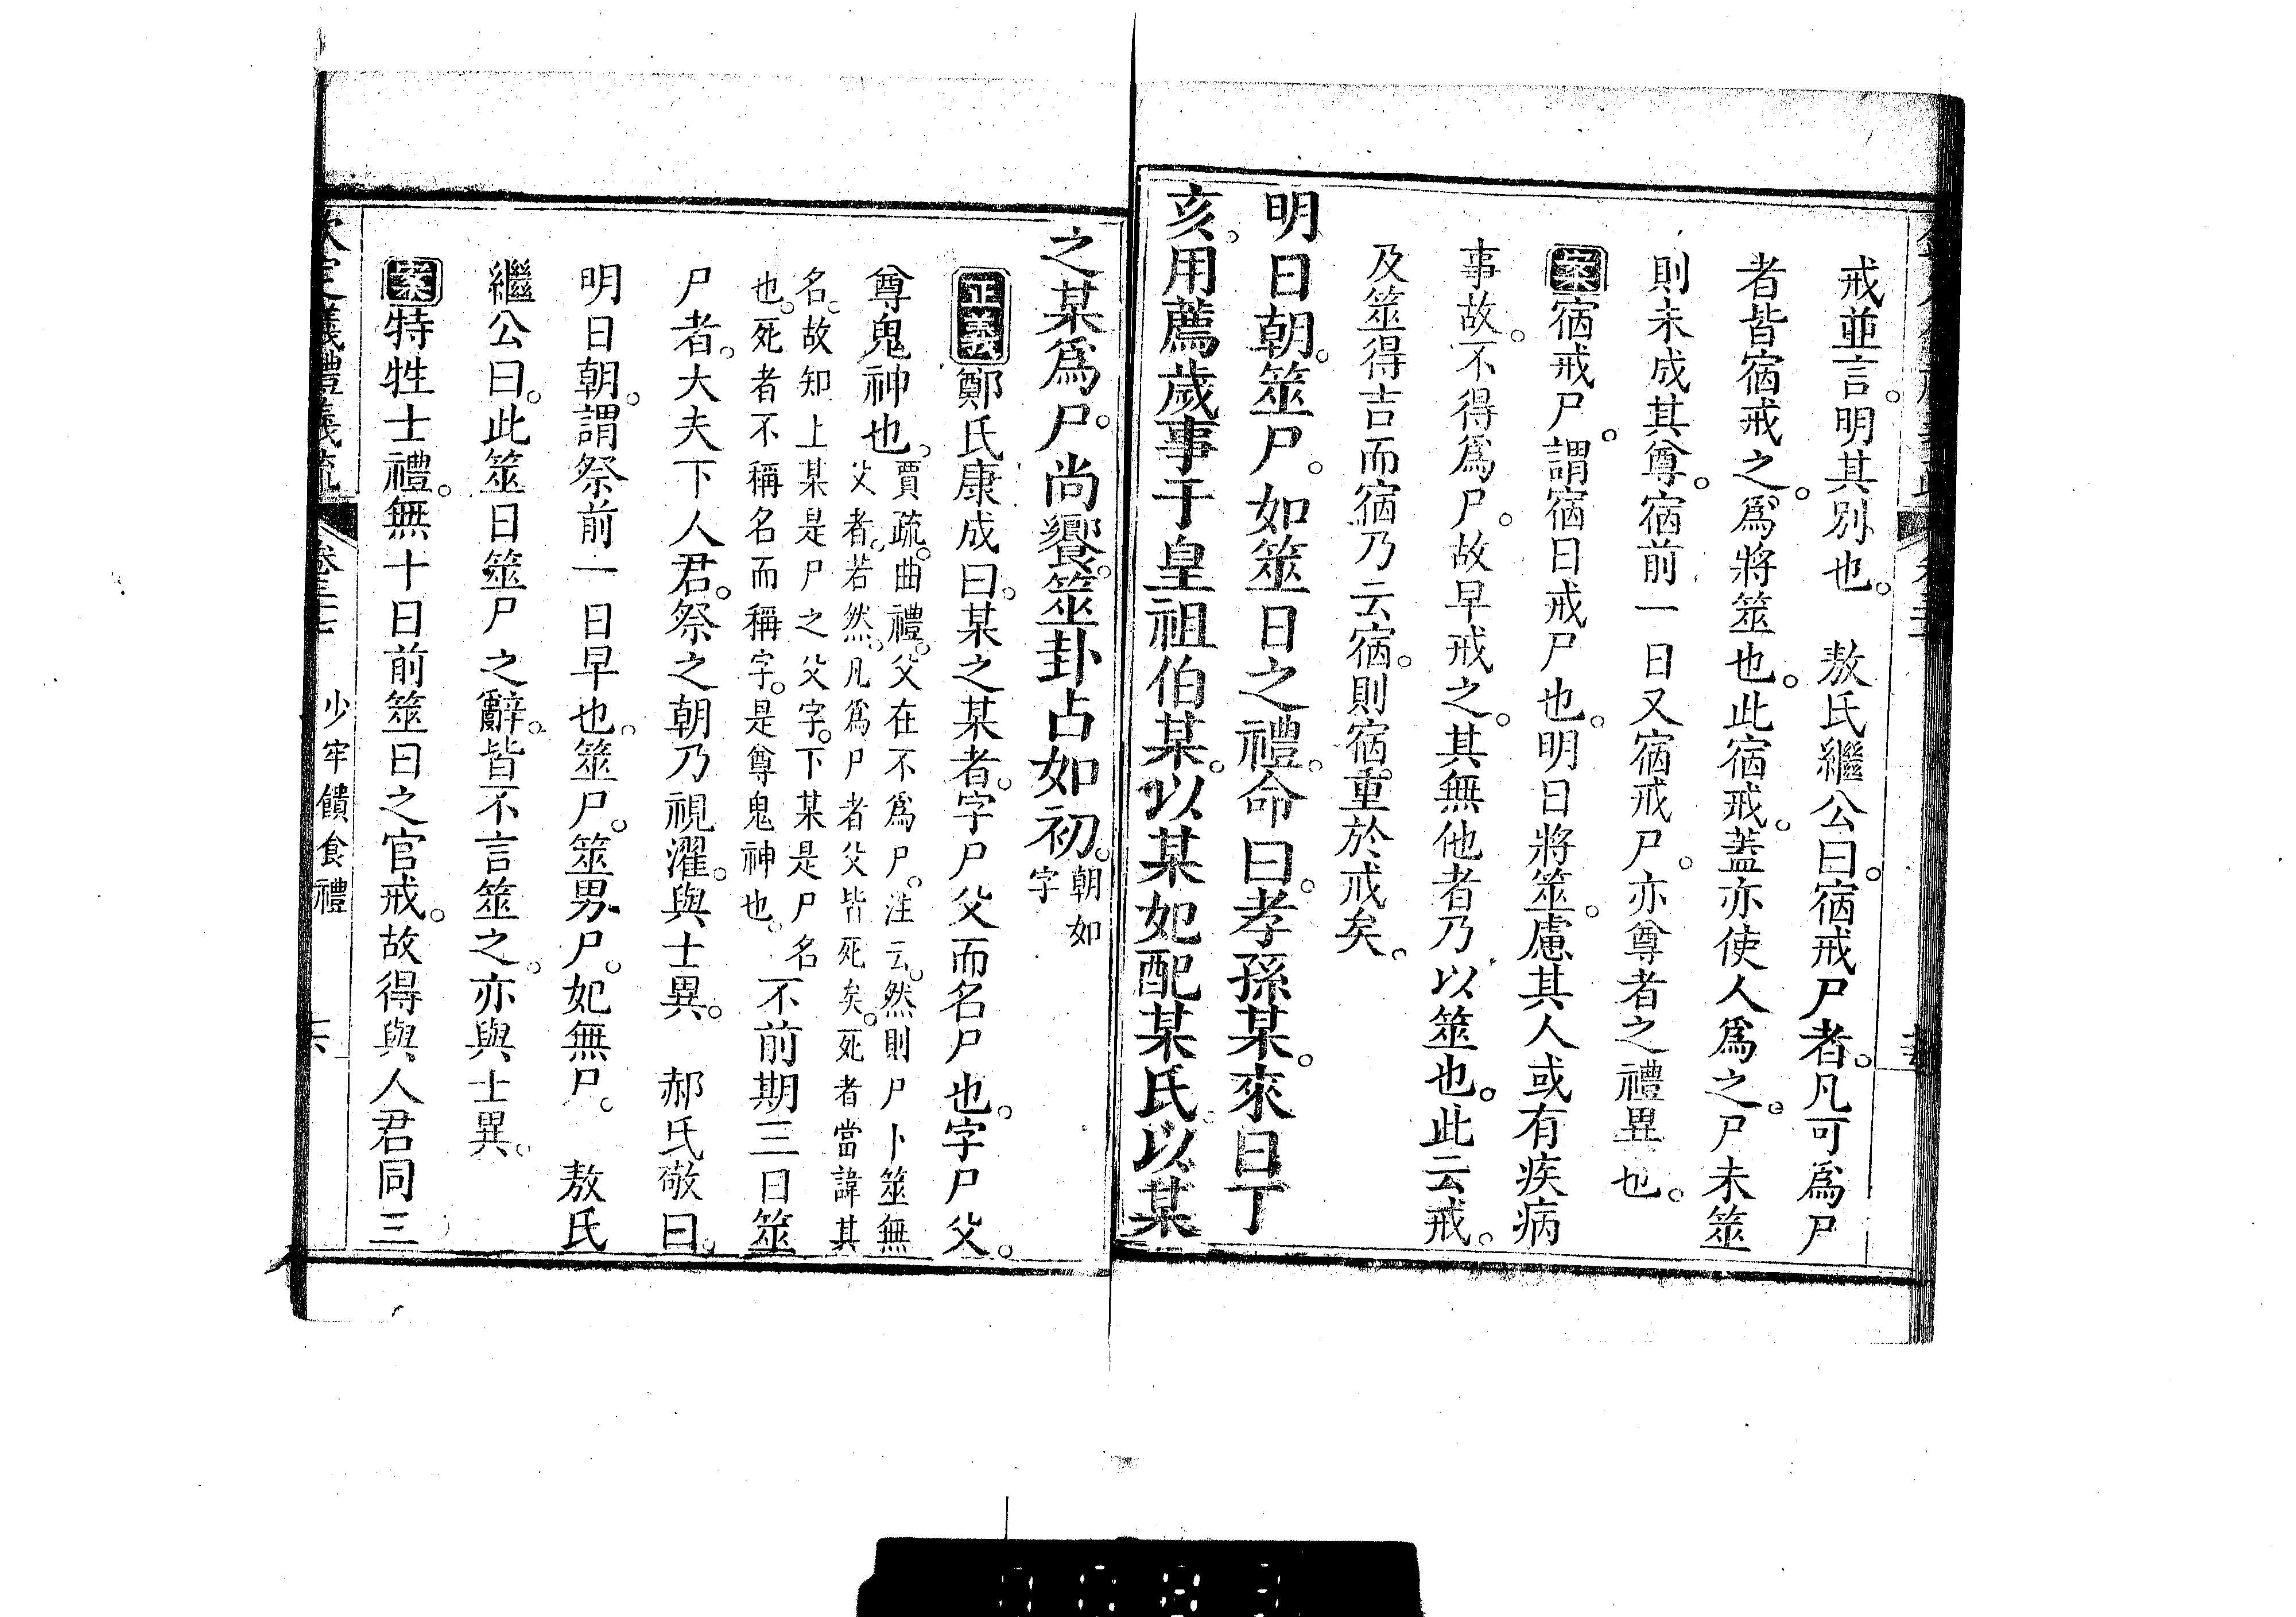 戒並言。明其別也。　敖氏繼公曰。宿戒尸者。凡可爲尸
者皆宿戒之。爲將筮也。此宿戒。蓋亦使人爲之。尸未筮
則未成其尊。宿前一日又宿戒尸。亦尊者之禮異也。
案宿戒尸。謂宿日戒尸也。明日將筮。慮其人或有疾病
事故。不得爲尸。故早戒之。其無他者乃以筮也。此云戒。
及筮得吉而宿乃云宿。則宿重於戒矣。
明日朝。筮尸。如筮日之禮。命曰。孝孫某。來日丁
亥。用薦歲事于皇祖伯某。以某妃配某氏。以某
之某爲尸。尚饗。筮卦占如初。朝如
字
正義鄭氏康成曰。某之某者。字尸父而名尸也。字尸父。
尊鬼神也。賈疏。曲禮。父在不爲尸。注云。然則尸卜筮無
父者。若然。凡爲尸者父皆死矣。死者當諱其
名。故知上某是尸之父字。下某是尸名
也。死者不稱名而稱字。是尊鬼神也。　不前期三日筮
尸者。大夫下人君。祭之朝乃視濯。與士異。　郝氏敬曰。
明日朝。謂祭前一日早也。筮尸。筮男尸。妃無尸。　敖氏
繼公曰。此筮日筮尸之辭。皆不言筮之。亦與士異。
案特牲士禮。無十日前筮日之官戒。故得與人君同三
欽定儀禮義疏　卷三十七　少牢饋食禮　六